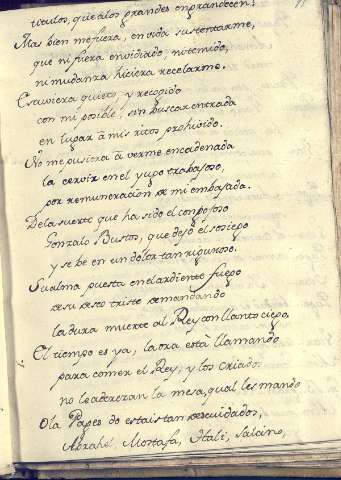 titulos, que a los grandes engrandecen!
Mas bien me fuera, en vida sustentarme,
que ni fuera envidiado, ni temido,
ni mudanza hiciera recelarme.
Estuviera quieto, y recogido
con mi posible, sin buscar entrada
en lugar â mis ritos prohivido.
No me pusiera â verme encadenada
la cerviz en el yugo trabajoso,
por remuneracion de mi embajada.
De la suerte que ha sido el congojoso
Gonzalo Bustos, que dejó el sosiego
y se bé en un dolor tan riguroso.
Su alma puesta en el ardiente fuego
de su seso triste demandando
la dura muerte al Rey con llanto ciego,
El tiempo es ya, la ora está llamando
para comer el Rey, y los criados
no le aderezan la mesa, qual les mando
Ola Pages do estais tan descuidados,
Abrahel, Mostafa, Hali, Salcino,